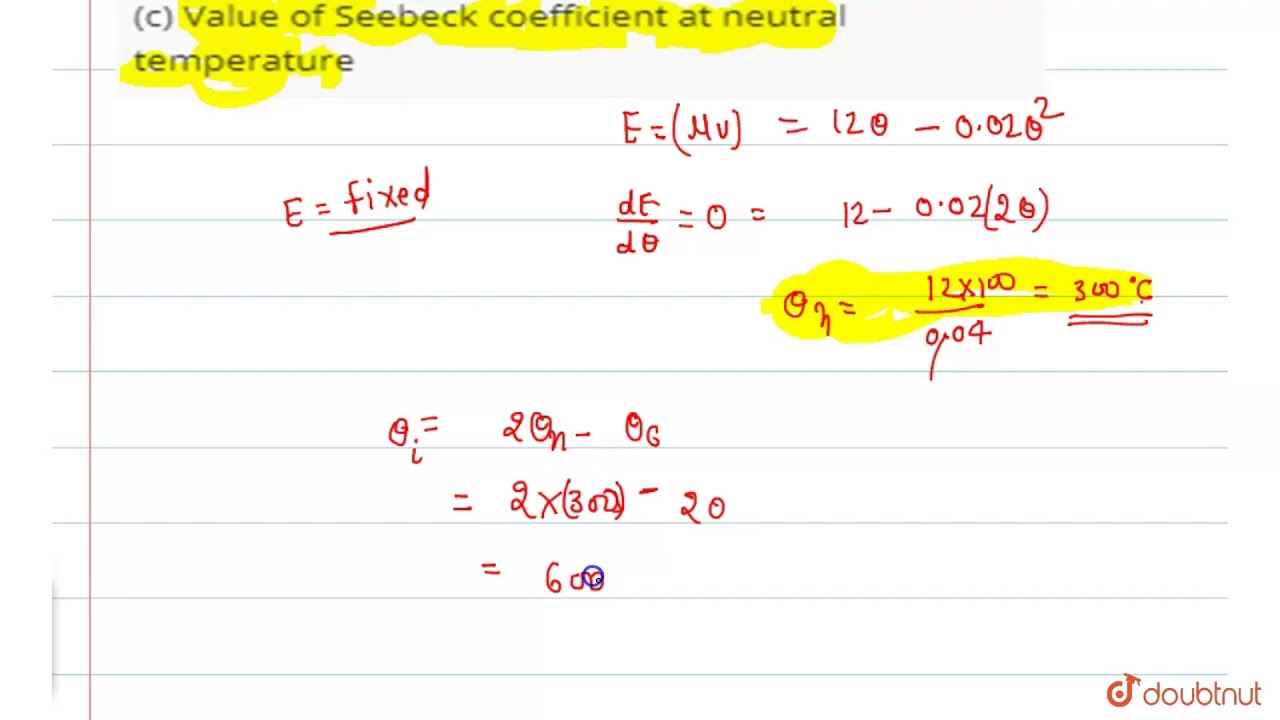 (c) Value of Seebeck coefficient at neutral
temperature
E = (μv) = 12θ - 0.02θ²
E = fixed
dE/dθ = 0 = 12 - 0.02(2θ)
θn = 12×100/0.04 = 300°C
θi = 2θn - θ6
= 2×(300) - 20
= 600
doubtnut